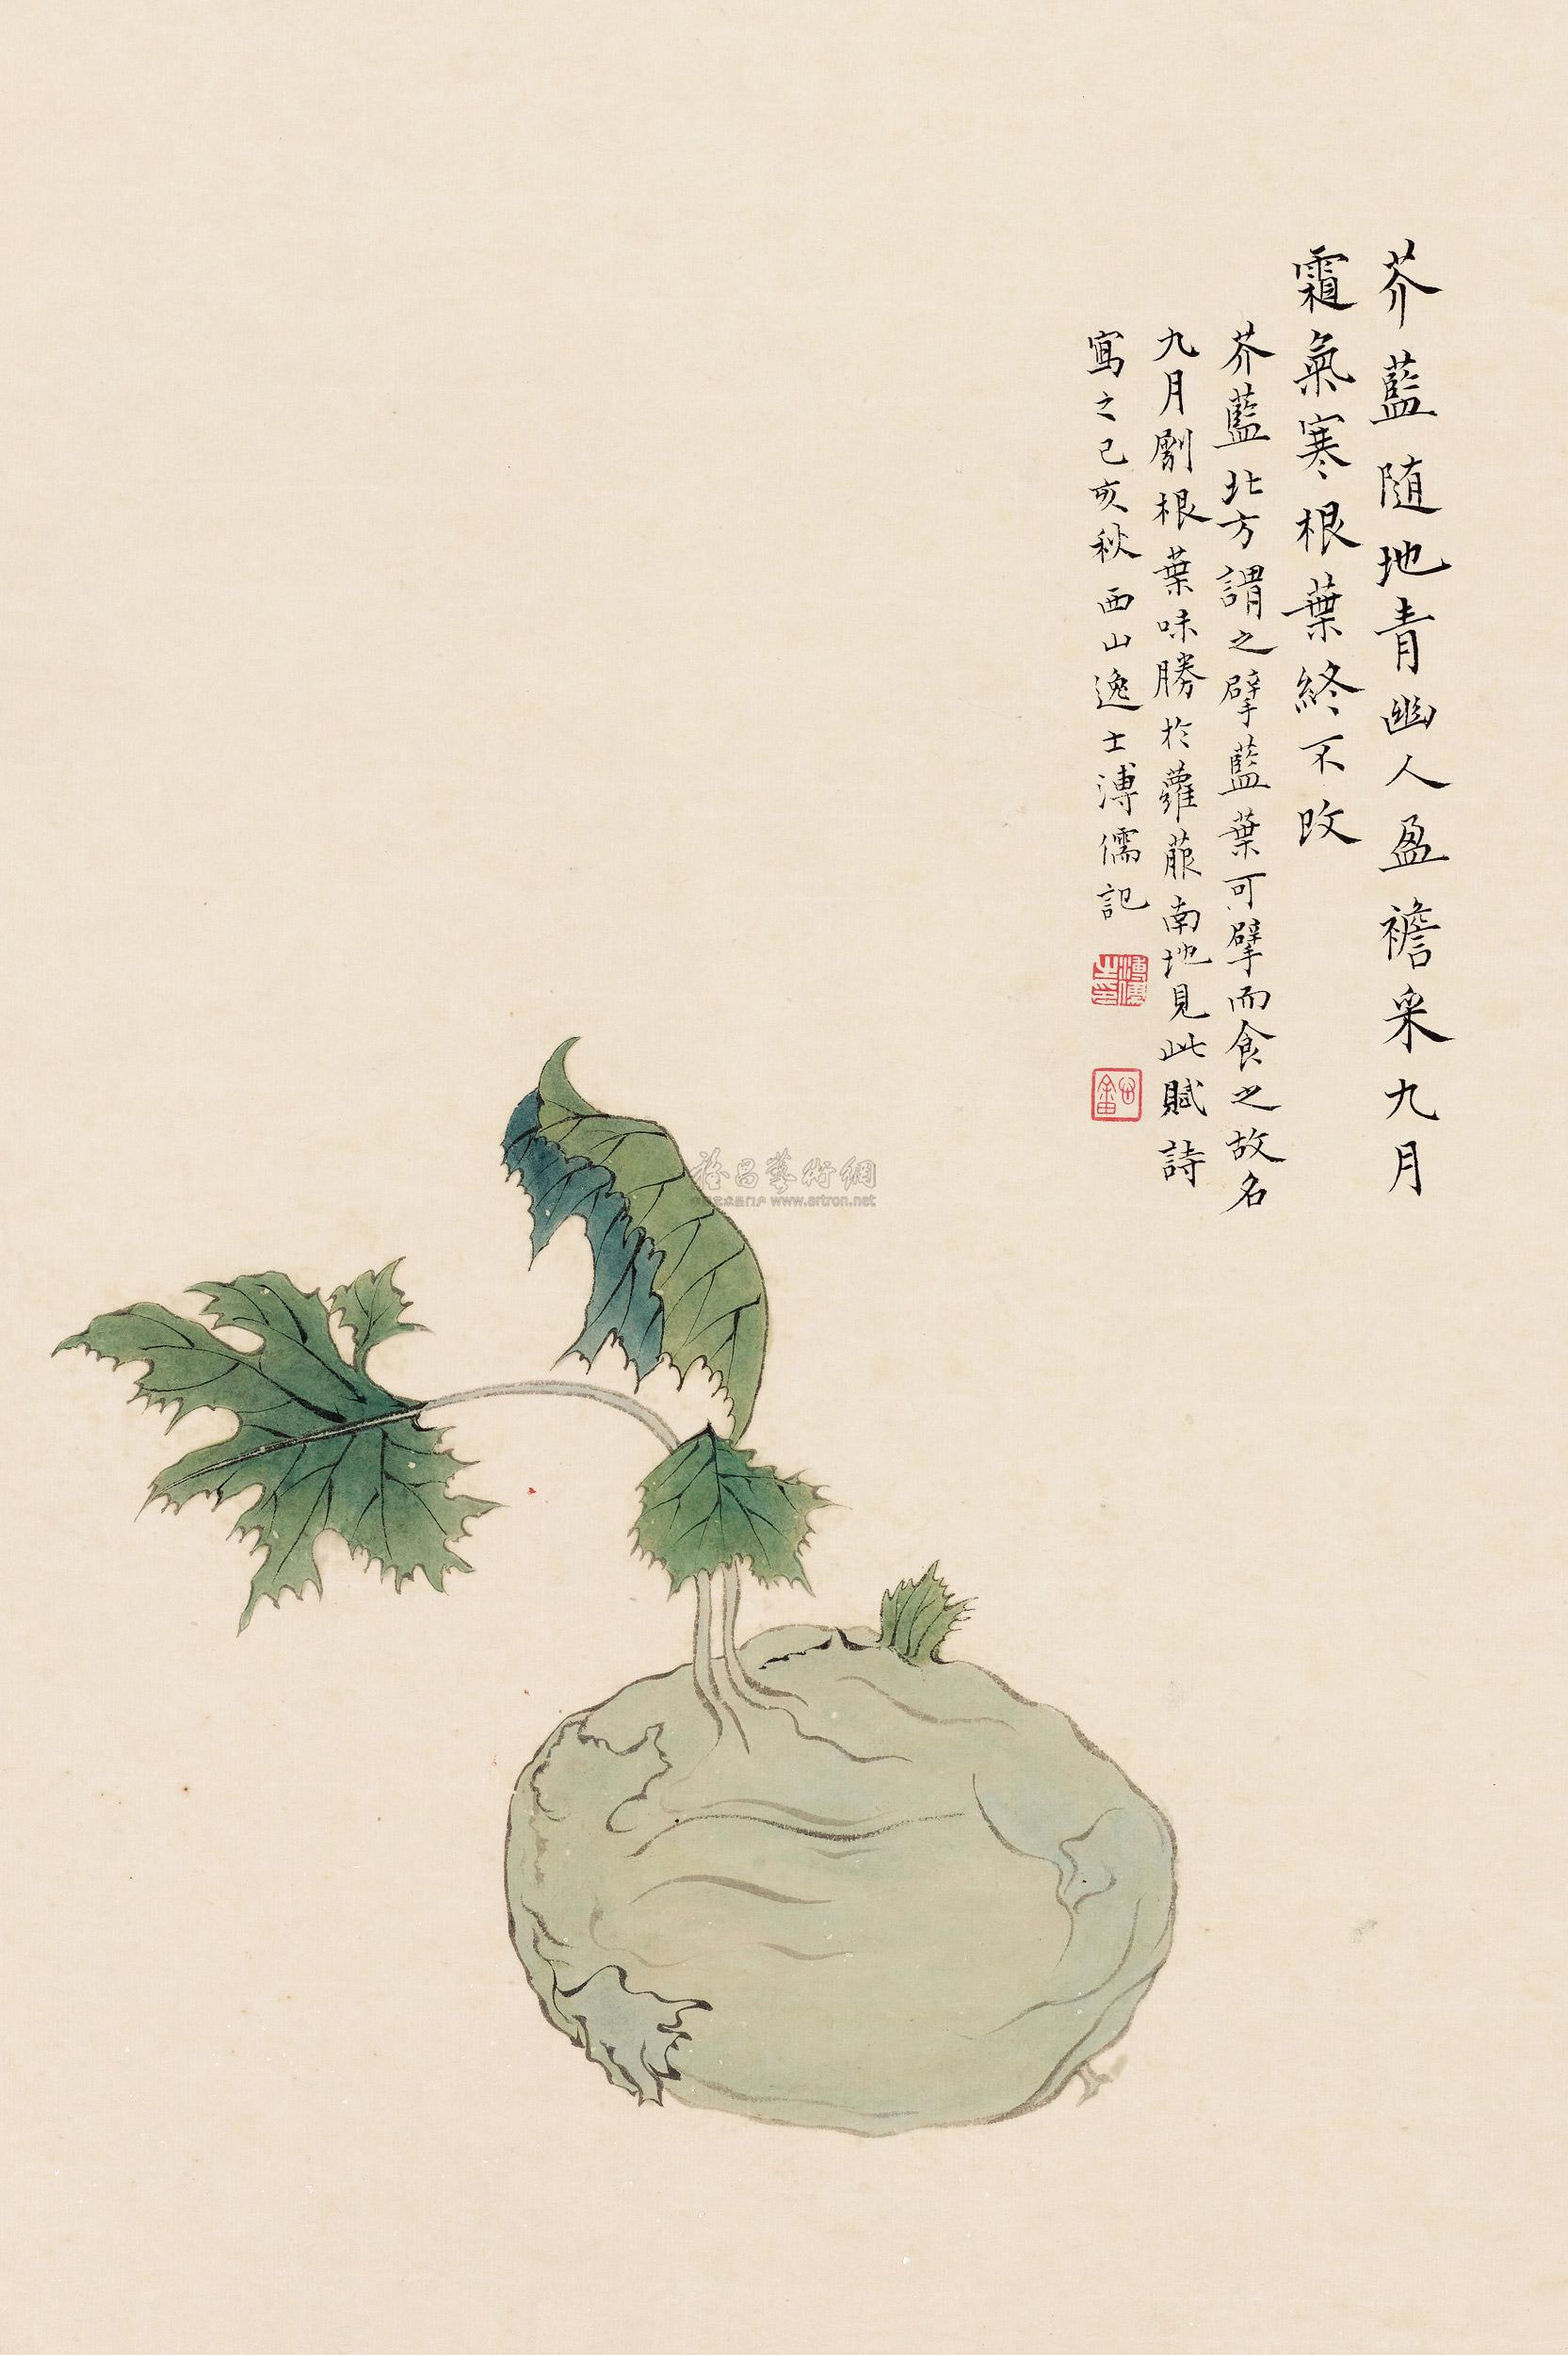 芥藍随地青幽人盈襜采九月
霜氣寒根葉終不改
芥藍北方謂之擘藍葉可擘而食之故名
九月劚根葉味勝於蘿菔南地見此賦詩
寫之己亥秋西山逸士溥儒記
溥儒之印
www.artron.net